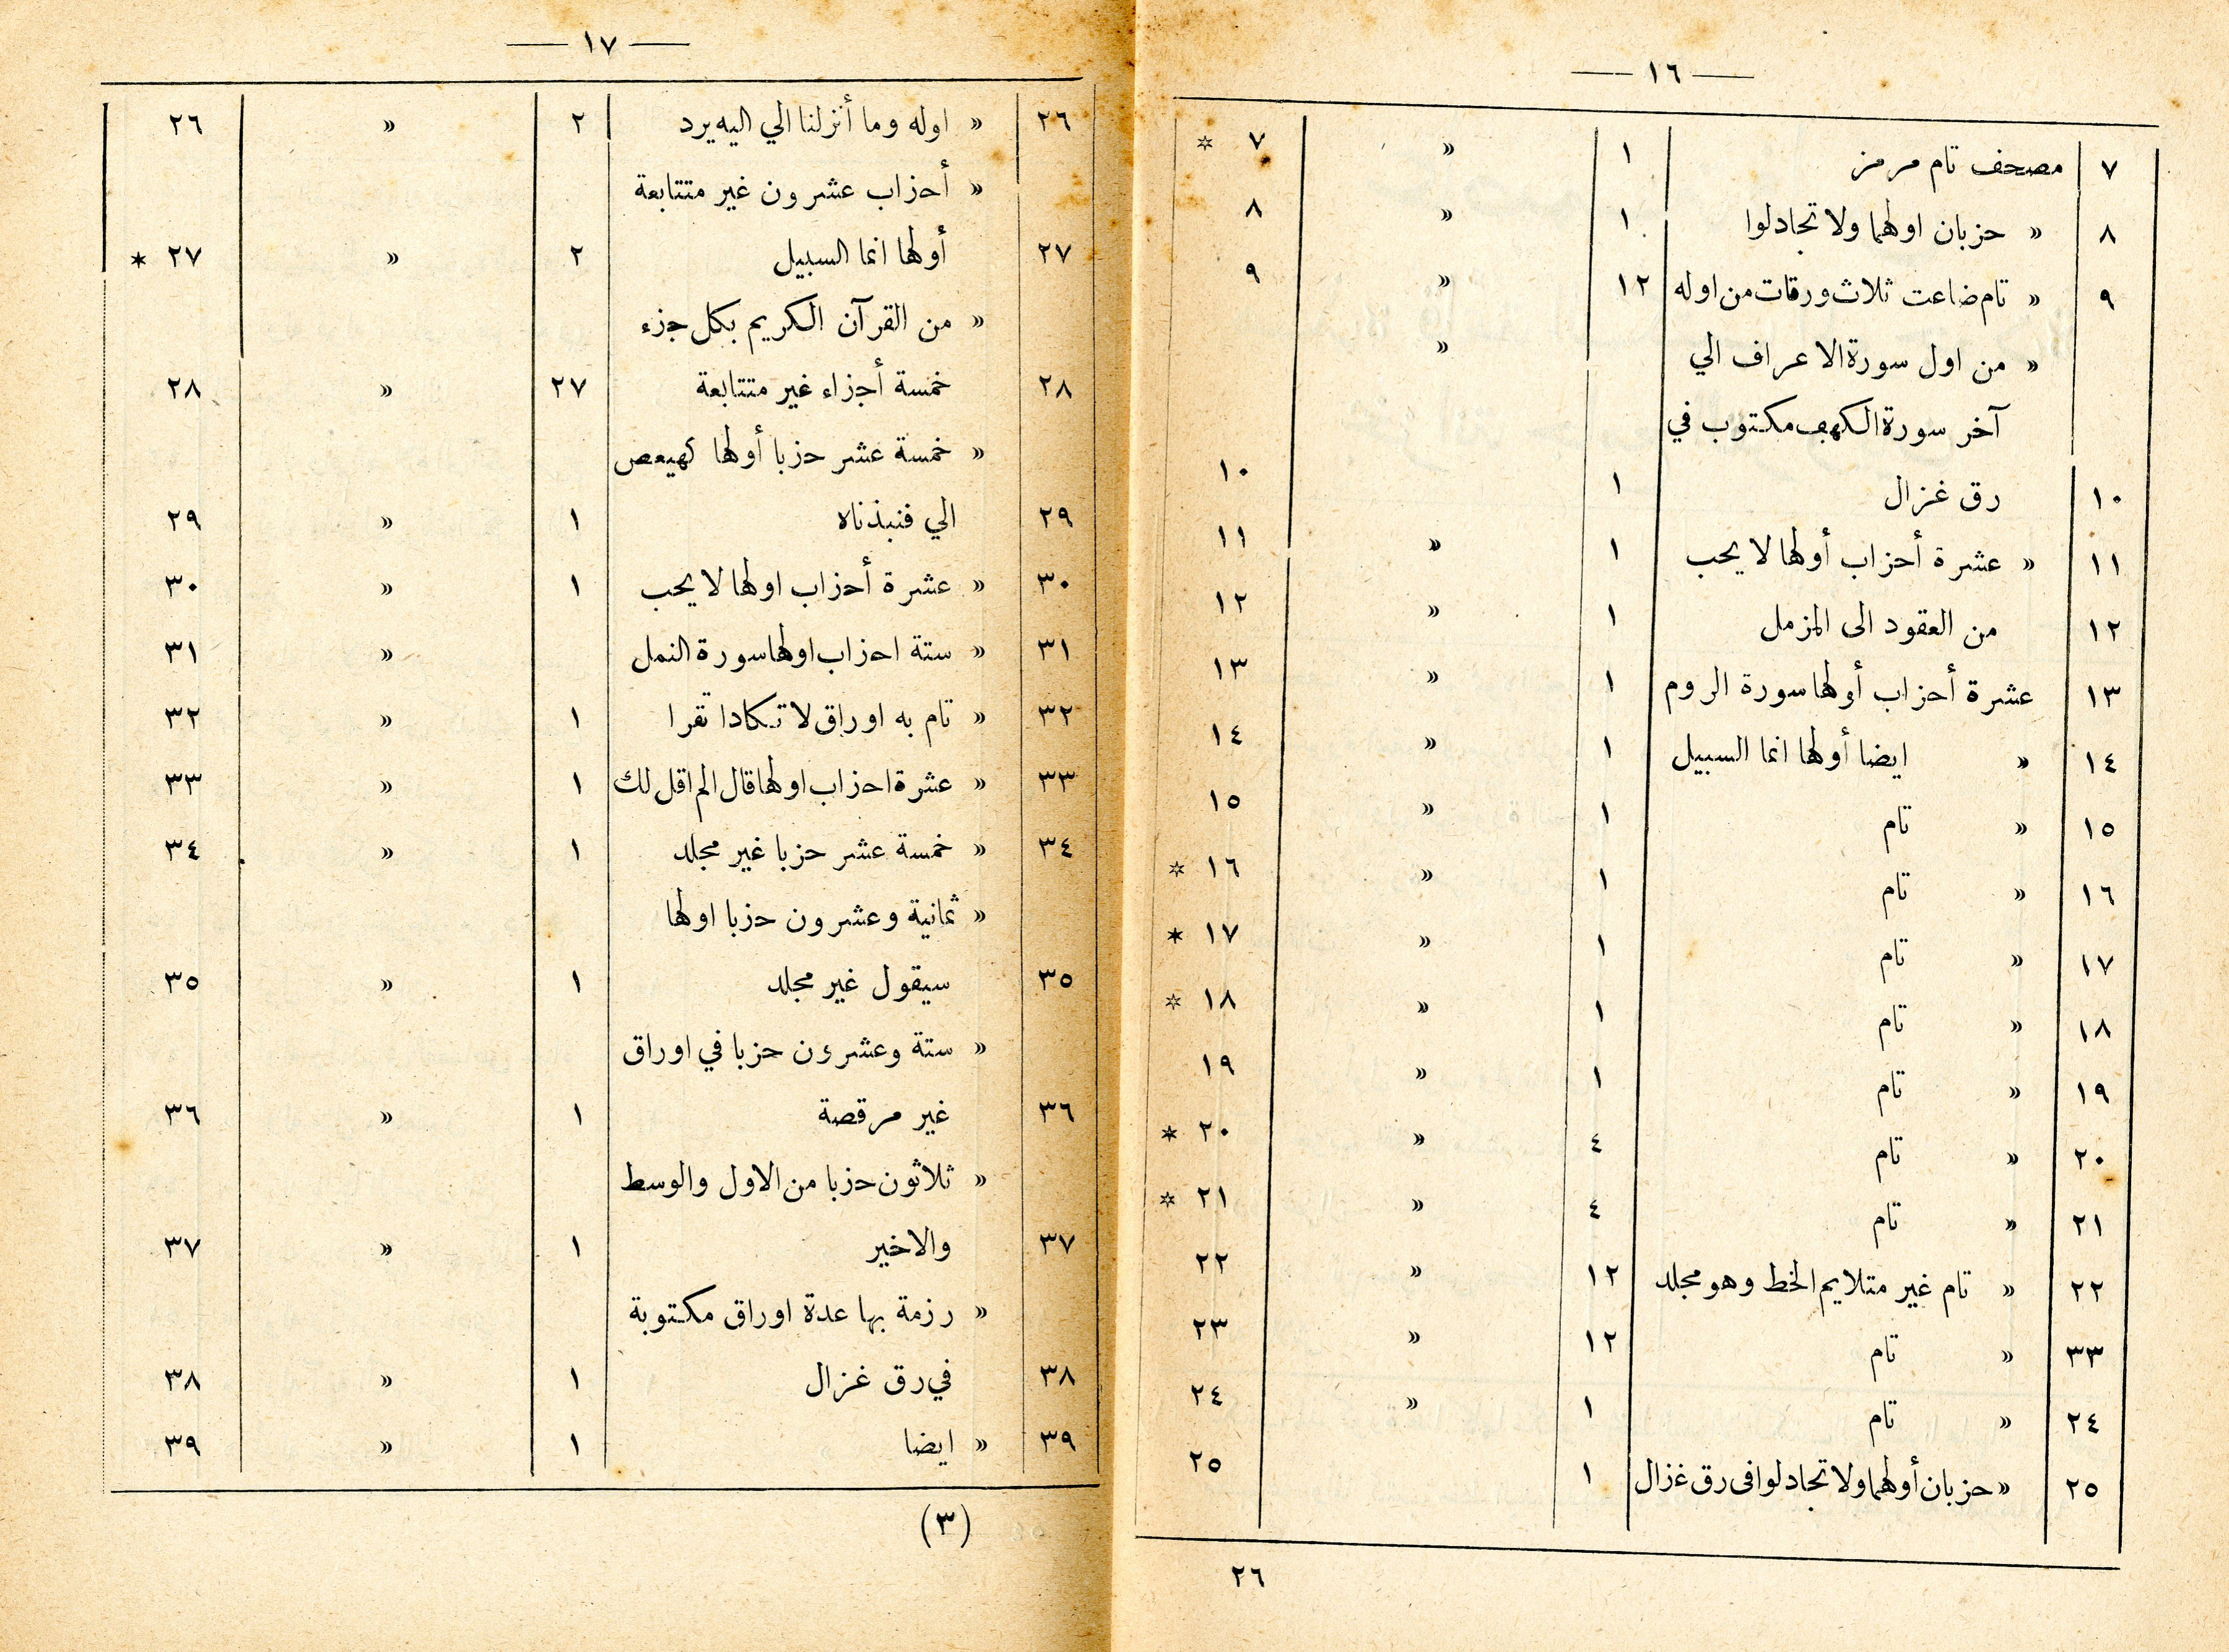 — ١٦ —
٧ مصحف تام مرمز ١ » ٧ ✡
٨ » حزبان اولهما ولا تجادلوا ١ » ٨
٩ » تام ضاعت ثلاث ورقات من اوله ١٢ » ٩
» من اول سورة الاعراف الي »
آخر سورة الكهف مكتوب في
١٠ رق غزال ١ ١٠
١١ » عشرة أحزاب أولها لا يحب ١ » ١١
١٢ من العقود الى المزمل ١ » ١٢
١٣ عشرة أحزاب أولها سورة الروم ١ » ١٣
١٤ » ايضا أولها انما السبيل ١ » ١٤
١٥ » تام ١ » ١٥
١٦ » تام ١ » ١٦ ✡
١٧ » تام ١ » ١٧ ✶
١٨ » تام ١ » ١٨ ✡
١٩ » تام ١ » ١٩
٢٠ » تام ٤ » ٢٠ ✶
٢١ » تام ٤ » ٢١ ✡
٢٢ » تام غير متلايم الخط وهو مجلد ١٢ » ٢٢
٣٣ » تام ١٢ » ٢٣
٢٤ » تام ١ » ٢٤
٢٥ » حزبان أولهما ولا تجادلوا فى رق غزال ١ ٢٥
٢٦
— ١٧ —
٢٦ » اوله وما أنزلنا الي اليه يرد ٢ » ٢٦
» أحزاب عشرون غير متتابعة
٢٧ أولها انما السبيل ٢ » ٢٧ ✶
» من القرآن الكريم بكل جزء
٢٨ خمسة أجزاء غير متتابعة ٢٧ » ٢٨
» خمسة عشر حزبا أولها كهيعص
٢٩ الي فنبذناه ١ » ٢٩
٣٠ » عشرة أحزاب اولها لا يحب ١ » ٣٠
٣١ » ستة احزاب اولها سورة النمل » ٣١
٣٢ » تام به اوراق لا تكادا تقرا ١ » ٣٢
٣٣ » عشرة احزاب اولها قال الم اقل لك ١ » ٣٣
٣٤ » خمسة عشر حزبا غير مجلد ١ » ٣٤
» ثمانية وعشرون حزبا اولها
٣٥ سيقول غير مجلد ١ » ٣٥
» ستة وعشرون حزبا في اوراق
٣٦ غير مرقصة ١ » ٣٦
» ثلاثون حزبا من الاول والوسط
٣٧ والاخير ١ » ٣٧
» رزمة بها عدة اوراق مكتوبة
٣٨ في رق غزال ١ » ٣٨
٣٩ » ايضا ١ » ٣٩
(٣)